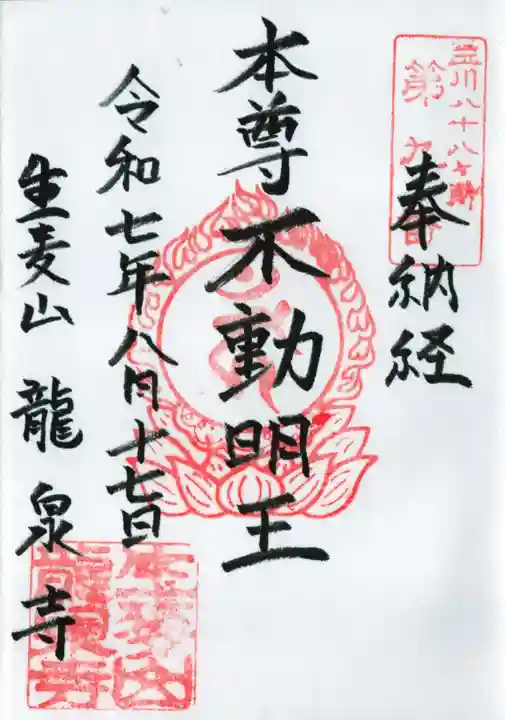 奉納経
本尊不動明王
令和七年八月十七日
生麦山 龍泉寺
玉川八十八ヶ所
第九番
生麦山
龍泉寺